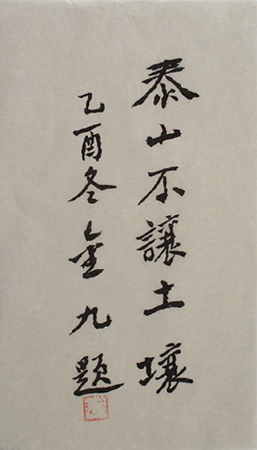 泰山不讓土壤
乙酉冬金九題